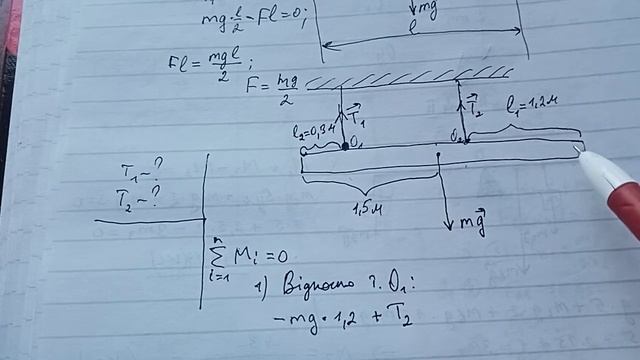 mg·l/2 - Fl = 0;
mg
l
Fl = mgl/2;
F = mg/2
T₁
T₂
l₁=1,2м
l₂=0,3м
O₁
O₂
T₁ - ?
T₂ - ?
1,5м
mg
n
∑ Mᵢ = 0
i=1
1) Відносно т. O₁:
-mg · 1,2 + T₂